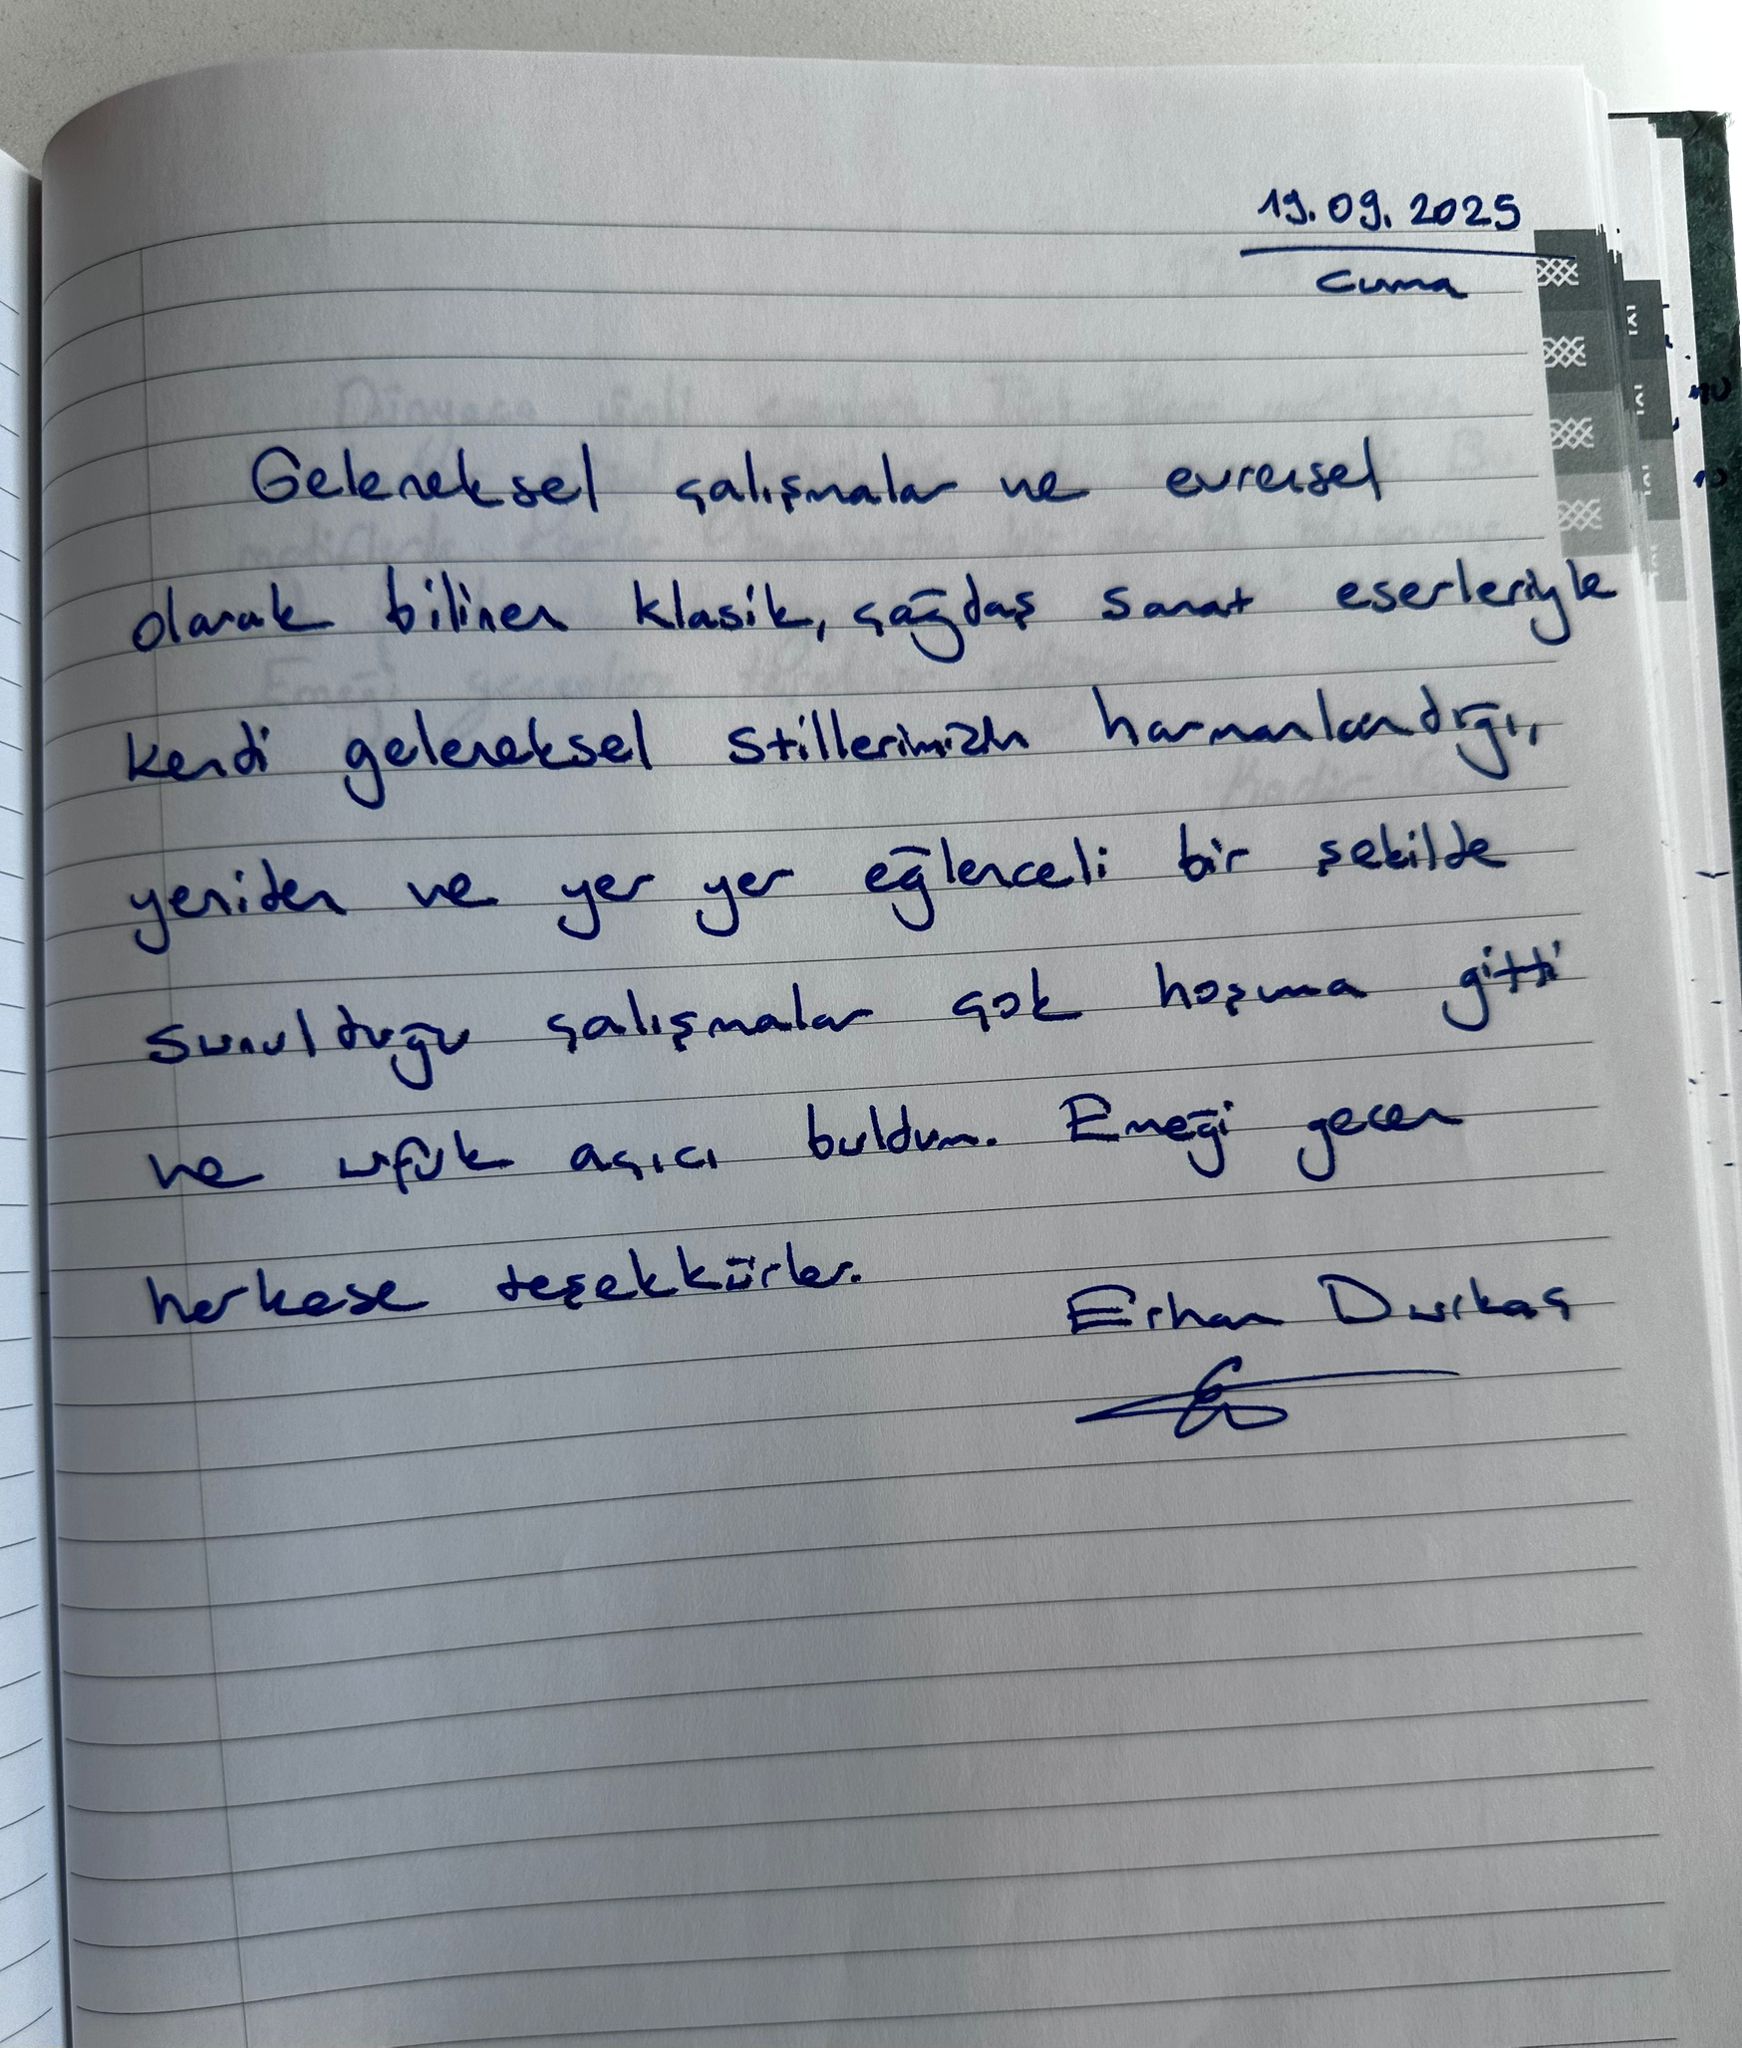 19.09.2025
Cuma
Geleneksel çalışmalar ve evrensel
olarak bilinen klasik, çağdaş sanat eserleriyle
kendi geleneksel stillerimizin harmanlandığı,
yeniden ve yer yer eğlenceli bir şekilde
sunulduğu çalışmalar çok hoşuma gitti
ve ufuk açıcı buldum. Emeği geçen
herkese teşekkürler.
Erhan Durkaş